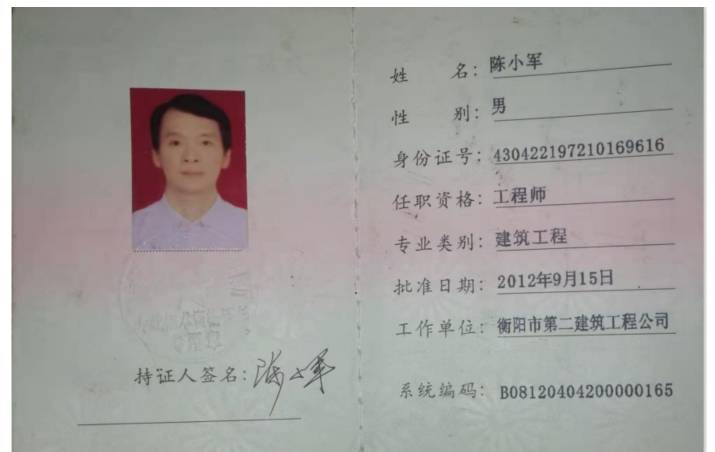 姓 名：陈小军
性 别：男
身份证号：430422197210169616
任职资格：工程师
专业类别：建筑工程
批准日期：2012年9月15日
工作单位：衡阳市第二建筑工程公司
系统编码：B08120404200000165
持证人签名：陈小军